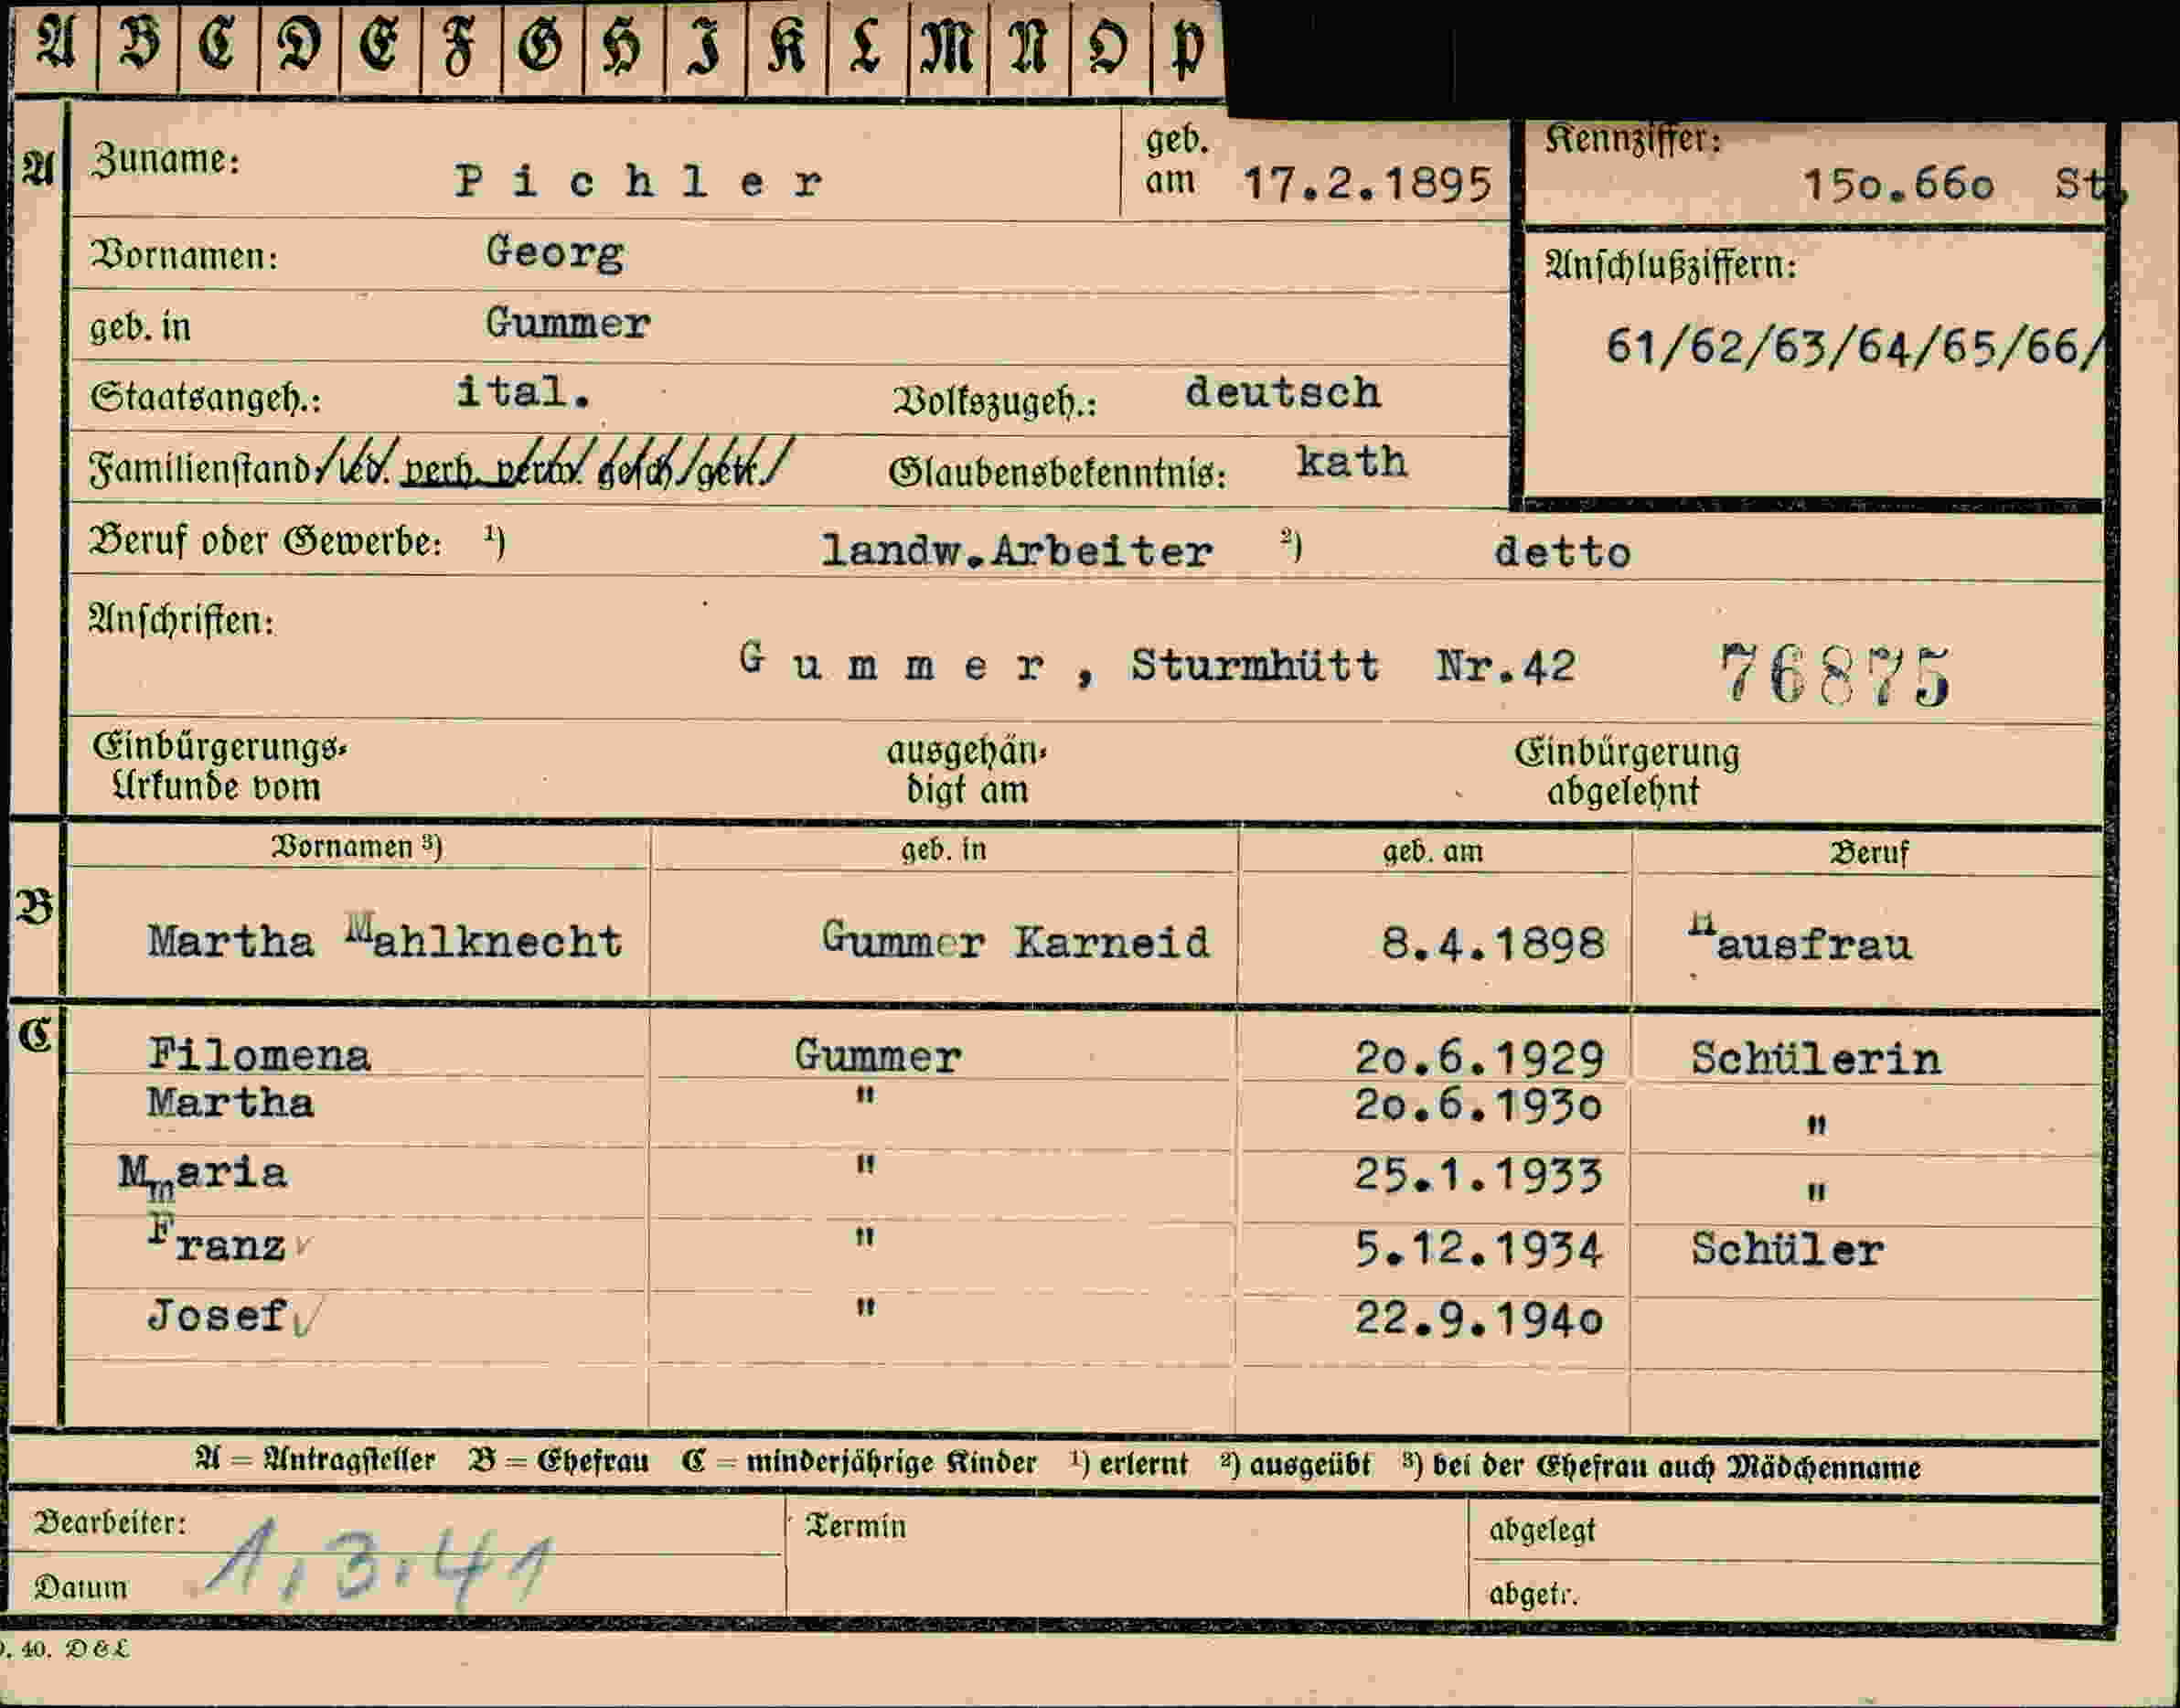 A B C D E F G H I K L M N O P
A Zuname: Pichler geb. am 17.2.1895 Kennziffer: 15o.66o St.
Vornamen: Georg Anschlußziffern:
geb. in Gummer 61/62/63/64/65/66/
Staatsangeh.: ital. Volkszugeh.: deutsch
Familienstand: led. verh. verw. gesch. getr. Glaubensbekenntnis: kath
Beruf oder Gewerbe: 1) landw.Arbeiter 2) detto
Anschriften:
Gummer, Sturmhütt Nr.42 76875
Einbürgerungs- ausgehän- Einbürgerung
Urkunde vom digt am abgelehnt
Vornamen 3) geb. in geb. am Beruf
B Martha Mahlknecht Gummer Karneid 8.4.1898 Hausfrau
C Filomena Gummer 2o.6.1929 Schülerin
Martha " 2o.6.193o "
Mmaria " 25.1.1933 "
Franz " 5.12.1934 Schüler
Josef " 22.9.194o
A = Antragsteller B = Ehefrau C = minderjährige Kinder 1) erlernt 2) ausgeübt 3) bei der Ehefrau auch Mädchenname
Bearbeiter: Termin abgelegt
Datum 1.3.41 abgetr.
40. D&L